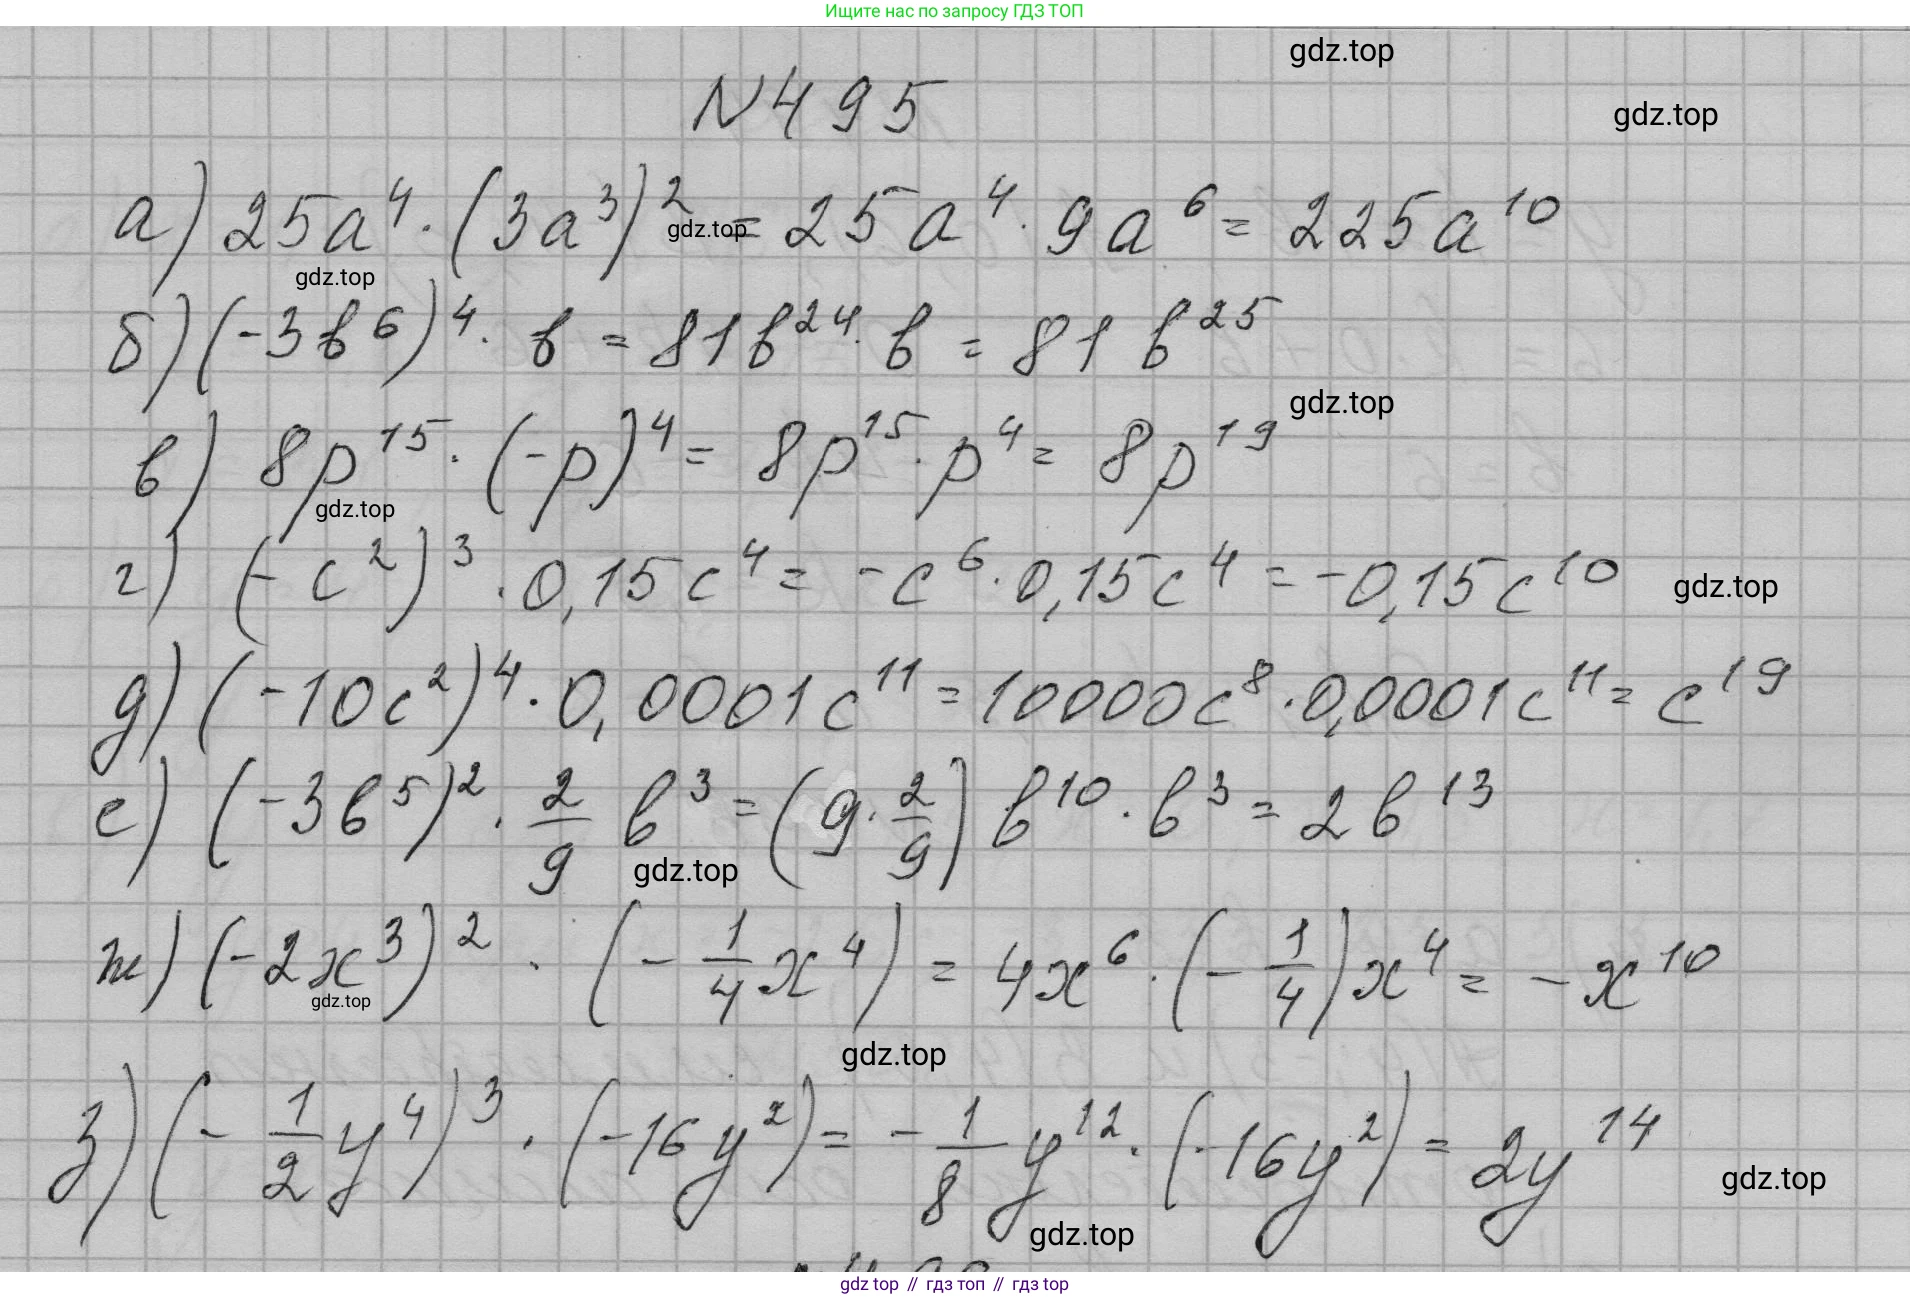 Ищите нас по запросу ГДЗ ТОП
gdz.top
N 495
gdz.top
а) 25a⁴ · (3a³)² = 25a⁴ · 9a⁶ = 225a¹⁰
gdz.top
gdz.top
б) (-3b⁶)⁴ · b = 81b²⁴ · b = 81 b²⁵
gdz.top
в) 8p¹⁵ · (-p)⁴ = 8p¹⁵ · p⁴ = 8p¹⁹
gdz.top
г) (-c²)³ · 0,15c⁴ = -c⁶ · 0,15c⁴ = -0,15c¹⁰
gdz.top
д) (-10c²)⁴ · 0,0001c¹¹ = 10000c⁸ · 0,0001c¹¹ = c¹⁹
е) (-3b⁵)² · 2/9 b³ = (9 · 2/9) b¹⁰ · b³ = 2b¹³
gdz.top
ж) (-2x³)² · (-1/4 x⁴) = 4x⁶ · (-1/4)x⁴ = -x¹⁰
gdz.top
gdz.top
з) (-1/2 y⁴)³ · (-16y²) = -1/8 y¹² · (-16y²) = 2y¹⁴
gdz.top
gdz.top
gdz top // гдз топ // гдз top